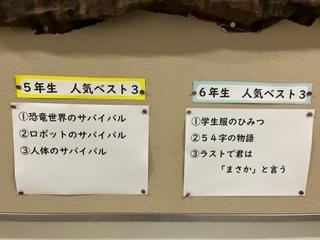 5年生　人気ベスト3
①恐竜世界のサバイバル
②ロボットのサバイバル
③人体のサバイバル
6年生　人気ベスト3
①学生服のひみつ
②54字の物語
③ラストで君は
「まさか」と言う